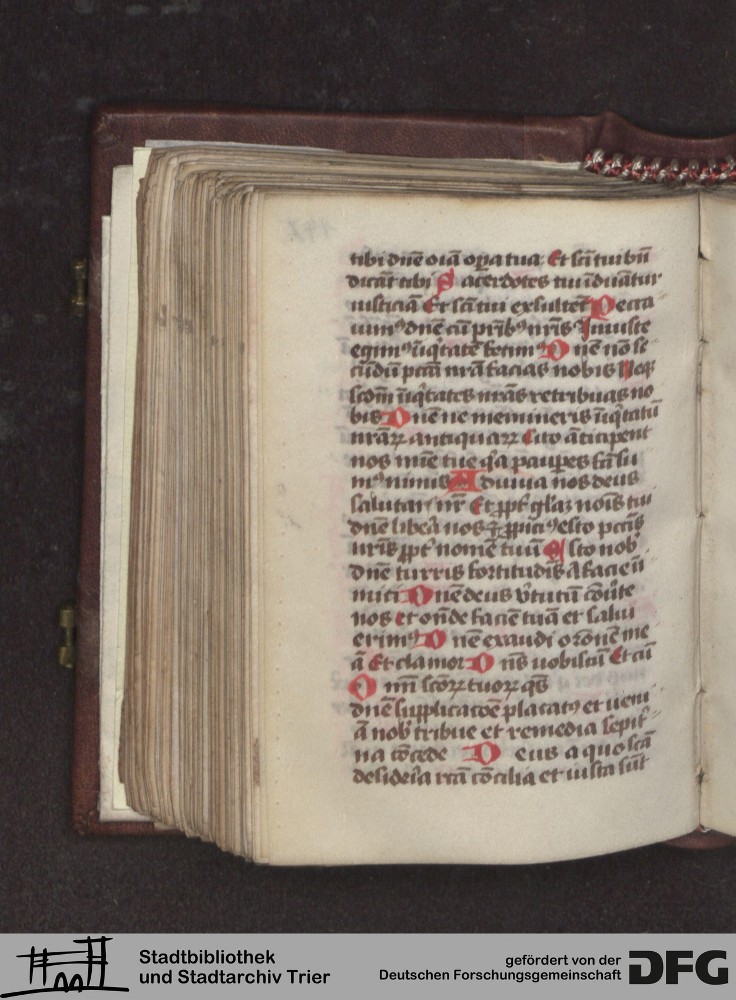 tibi dñe oïa oꝑa tua Et sc̄i tui bn̄
dicāt tibi Sacerdotes tui īduātur
iusticiā Et sc̄i tui exsultēt Pecca
uimꝰ dñe cū prībꝰ nr̄is Iniuste
egimꝰ īiq̇tatē fecimꝰ Dñe nō se
cūdū pctā nr̄a facias nobis Neqꝫ
scdm̄ īiq̇tates nr̄as retribuas no
bis Dñe ne memineris īiq̇tatū
nr̄aꝝ antiquaꝝ Cito āticipent
nos mīe tue q̇a paupes fc̄i su
mꝰ nimis Adiuua nos deus
salutar̄ nr̄ Et ꝓpt̄ gl̄aꝫ noīs tui
dñe libea nos ꝓpiciꝰ esto pctīs
nr̄is ꝓpt̄ nomē tuū Esto nob̄
dñe turris fortitudīs A facie in̄
mici Dñe deus v̄tutū cōūte
nos et on̄de faciē tuā et salui
erimꝰ Dñe exaudi orōnē me
ā Et clamor Dñs uobiscū Et cū
Om̄ scōꝝ tuoꝝ qs̄
dñe supplicacōe placatꝰ et ueni
ā nob̄ tribue et remedia sepit̄
na cōcede Deus a quo sc̄a
desideīa rc̄a cōcilia et iusta sūt
Stadtbibliothek
und Stadtarchiv Trier
gefördert von der
Deutschen Forschungsgemeinschaft
DFG